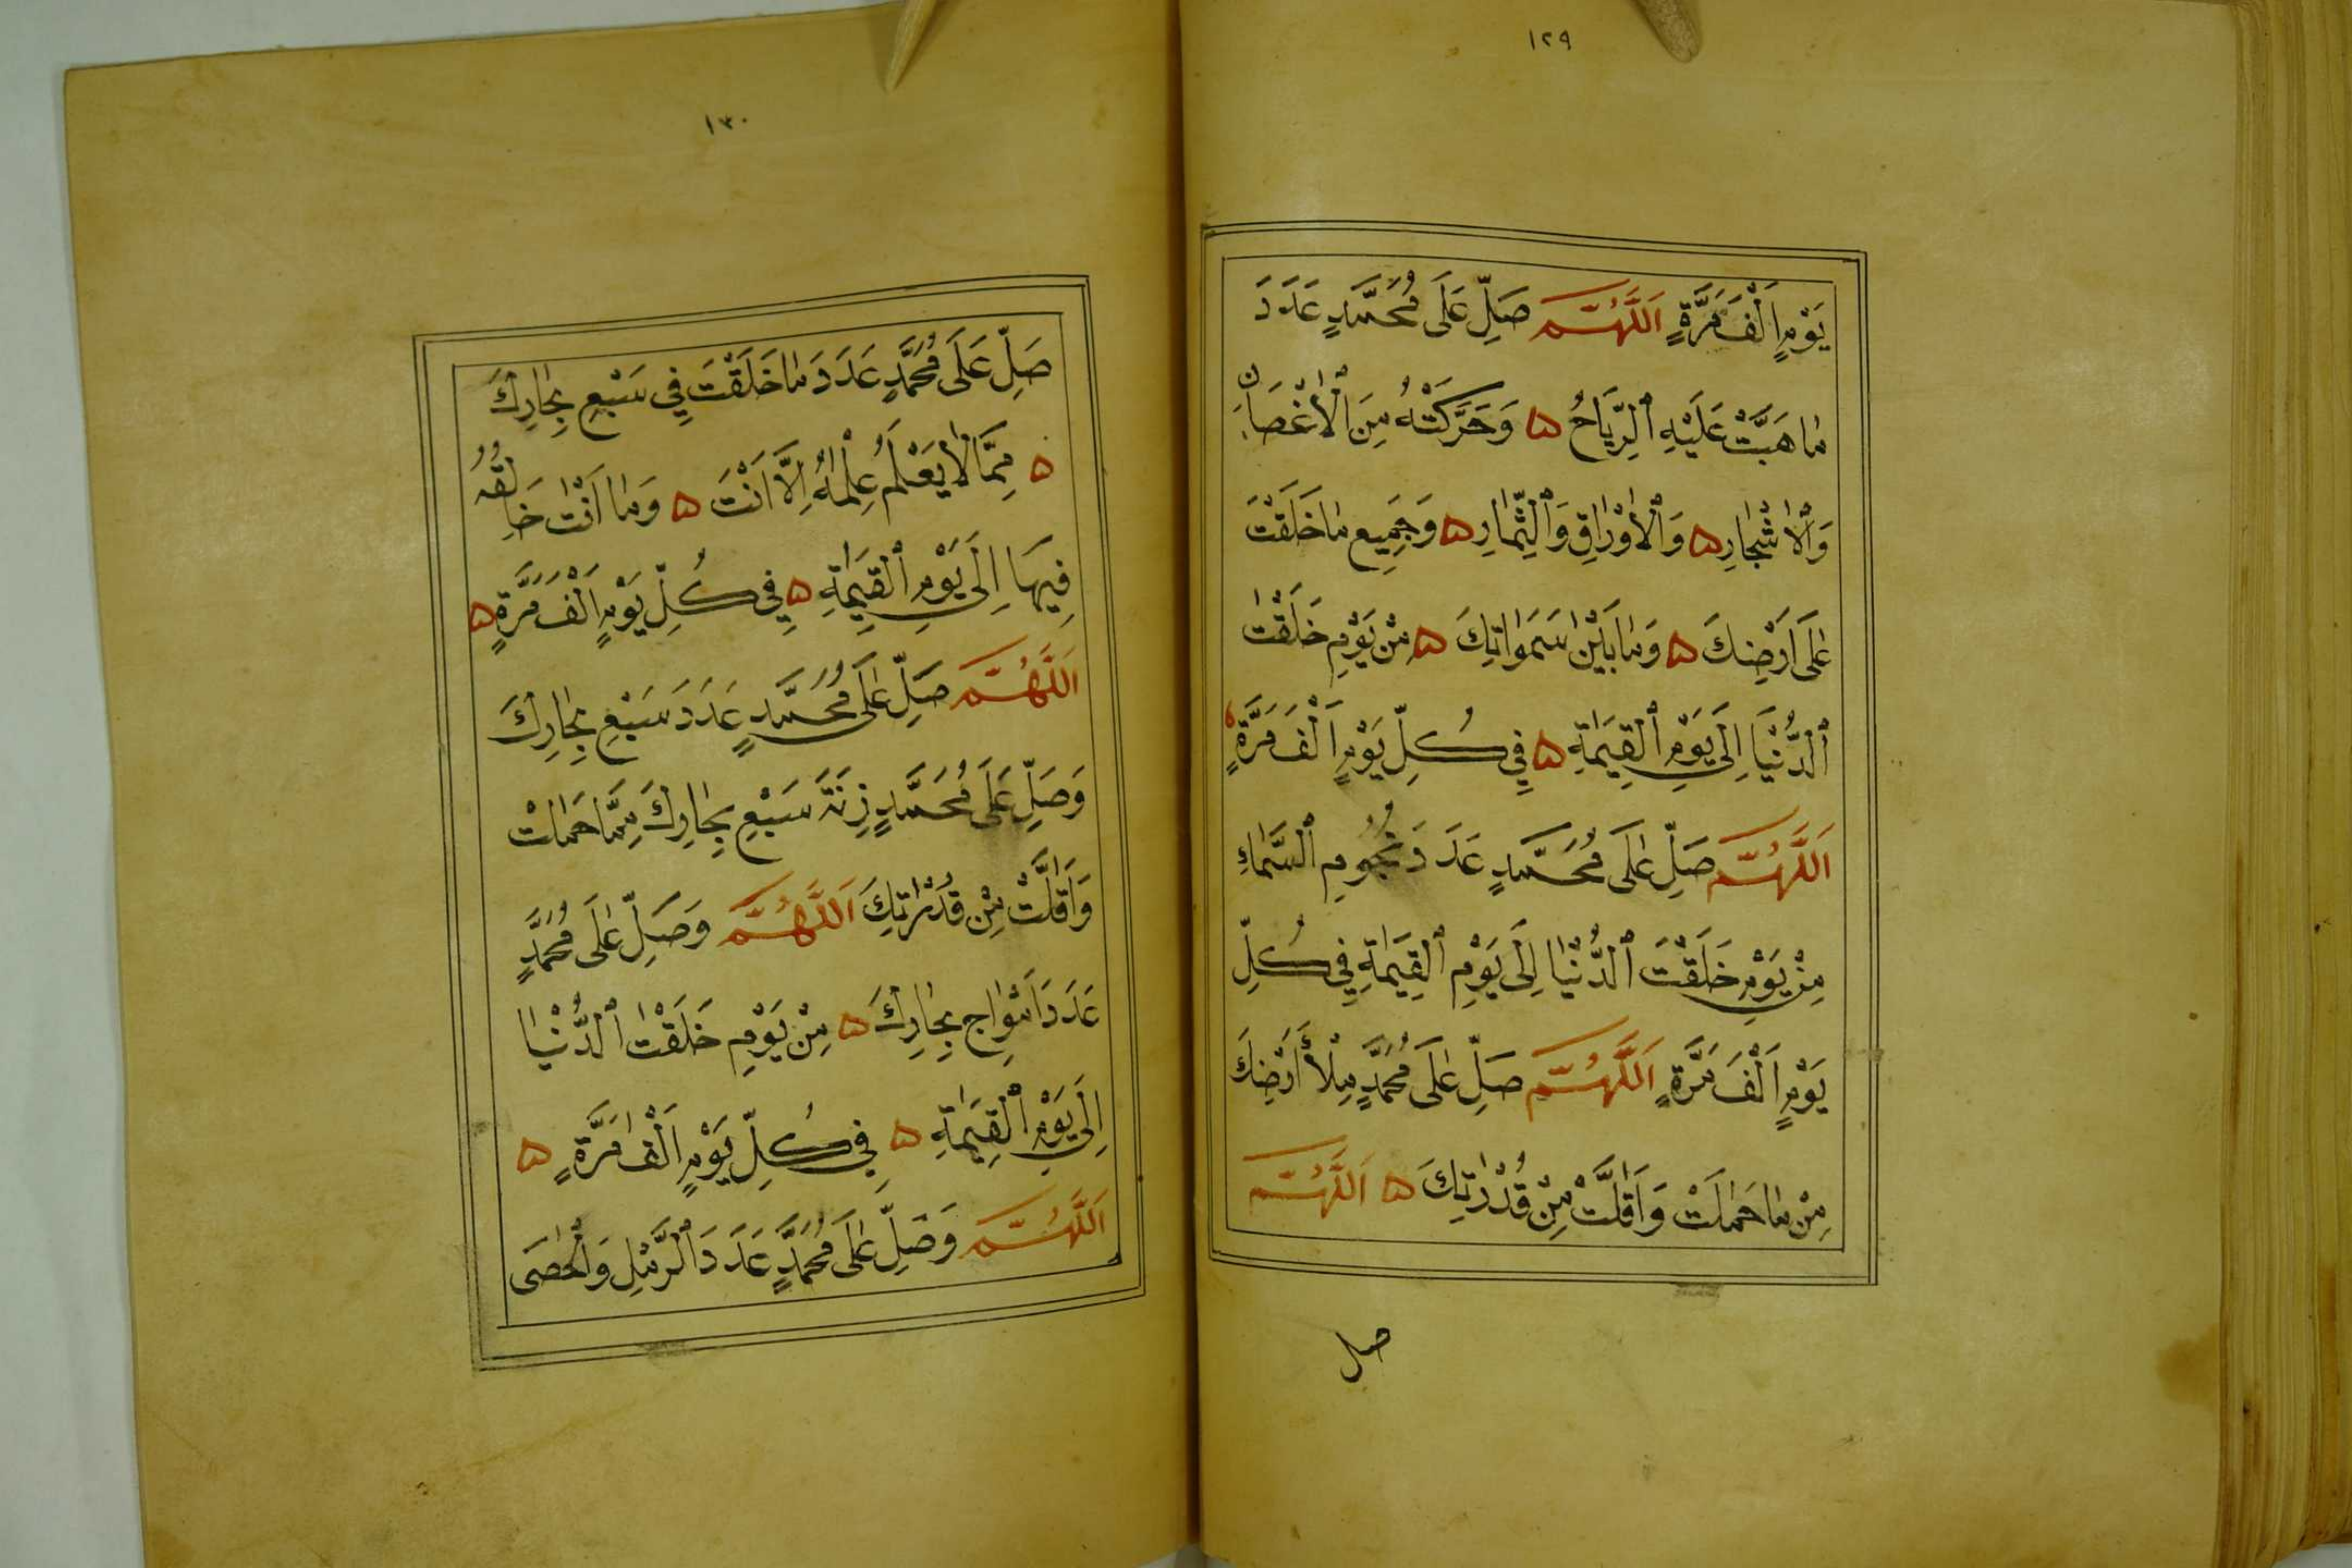 ١٢٩
يَوْمٍ اَلْفَ مَرَّةٍ اَللَّهُمَّ صَلِّ عَلَى مُحَمَّدٍ عَدَدَ
مَا هَبَّتْ عَلَيْهِ ٱلرِّيَاحُ ۵ وَحَرَّكَتْهُ مِنَ ٱلْأَغْصَانِ
وَٱلْأَشْجَارِ ۵ وَٱلْأَوْرَاقِ وَٱلثِّمَارِ ۵ وَجَمِيعِ مَا خَلَقْتَ
عَلَى اَرْضِكَ ۵ وَمَا بَيْنَ سَمَوَاتِكَ ۵ مِنْ يَوْمِ خَلَقْتَ
ٱلدُّنْيَا اِلَى يَوْمِ ٱلْقِيَمَةِ ۵ فِي كُلِّ يَوْمٍ اَلْفَ مَرَّةٍ ۵
اَللَّهُمَّ صَلِّ عَلَى مُحَمَّدٍ عَدَدَ نُجُومِ ٱلسَّمَاءِ
مِنْ يَوْمِ خَلَقْتَ ٱلدُّنْيَا اِلَى يَوْمِ ٱلْقِيَمَةِ فِي كُلِّ
يَوْمٍ اَلْفَ مَرَّةٍ اَللَّهُمَّ صَلِّ عَلَى مُحَمَّدٍ مِلْأَ أَرْضِكَ
مِنْ مَا حَمَلَتْ وَاَقَلَّتْ مِنْ قُدْرَتِكَ ۵ اَللَّهُمَّ
صل
١٣٠
صَلِّ عَلَى مُحَمَّدٍ عَدَدَ مَا خَلَقْتَ فِي سَبْعِ بِحَارِكَ
۵ مِمَّا لَا يَعْلَمُ عِلْمَهُ اِلَّا اَنْتَ ۵ وَمَا اَنْتَ خَالِقُهُ
فِيهَا اِلَى يَوْمِ ٱلْقِيَمَةِ ۵ فِي كُلِّ يَوْمٍ اَلْفَ مَرَّةٍ ۵
اَللَّهُمَّ صَلِّ عَلَى مُحَمَّدٍ عَدَدَ سَبْعِ بِحَارِكَ
وَصَلِّ عَلَى مُحَمَّدٍ زِنَةَ سَبْعِ بِحَارِكَ مِمَّا حَمَلَتْ
وَاَقَلَّتْ مِنْ قُدْرَتِكَ اَللَّهُمَّ وَصَلِّ عَلَى مُحَمَّدٍ
عَدَدَ اَمْوَاجِ بِحَارِكَ ۵ مِنْ يَوْمِ خَلَقْتَ ٱلدُّنْيَا
اِلَى يَوْمِ ٱلْقِيَمَةِ ۵ فِي كُلِّ يَوْمٍ اَلْفَ مَرَّةٍ ۵
اَللَّهُمَّ وَصَلِّ عَلَى مُحَمَّدٍ عَدَدَ ٱلرَّمْلِ وَٱلْحَصَى